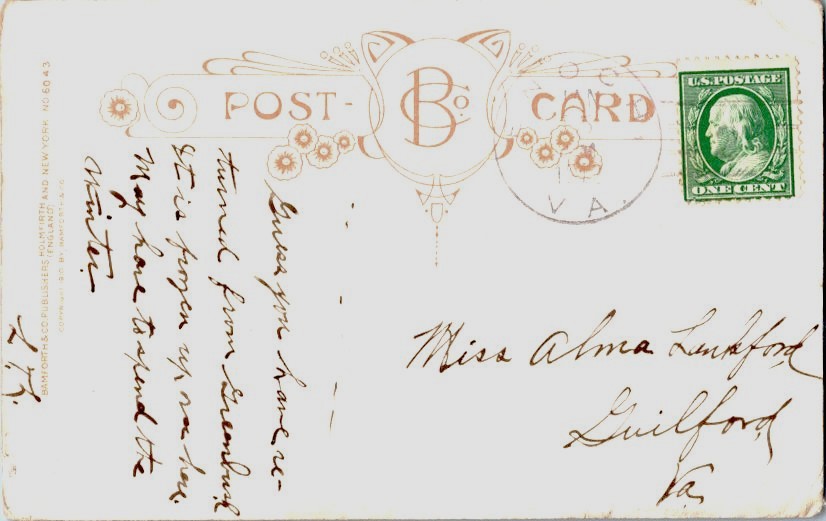 POST- BCo. CARD
U.S. POSTAGE
ONE CENT
OC
VA.
Guess you have re-
turned from Greenbush
It is frozen up over here.
May have to spend the
Winter.
Miss Alma Lankford
Guilford
Va.
BAMFORTH & CO. PUBLISHERS HOLMFIRTH AND NEW YORK NO 6043
(ENGLAND)
COPYRIGHT 1910 BY BAMFORTH & CO